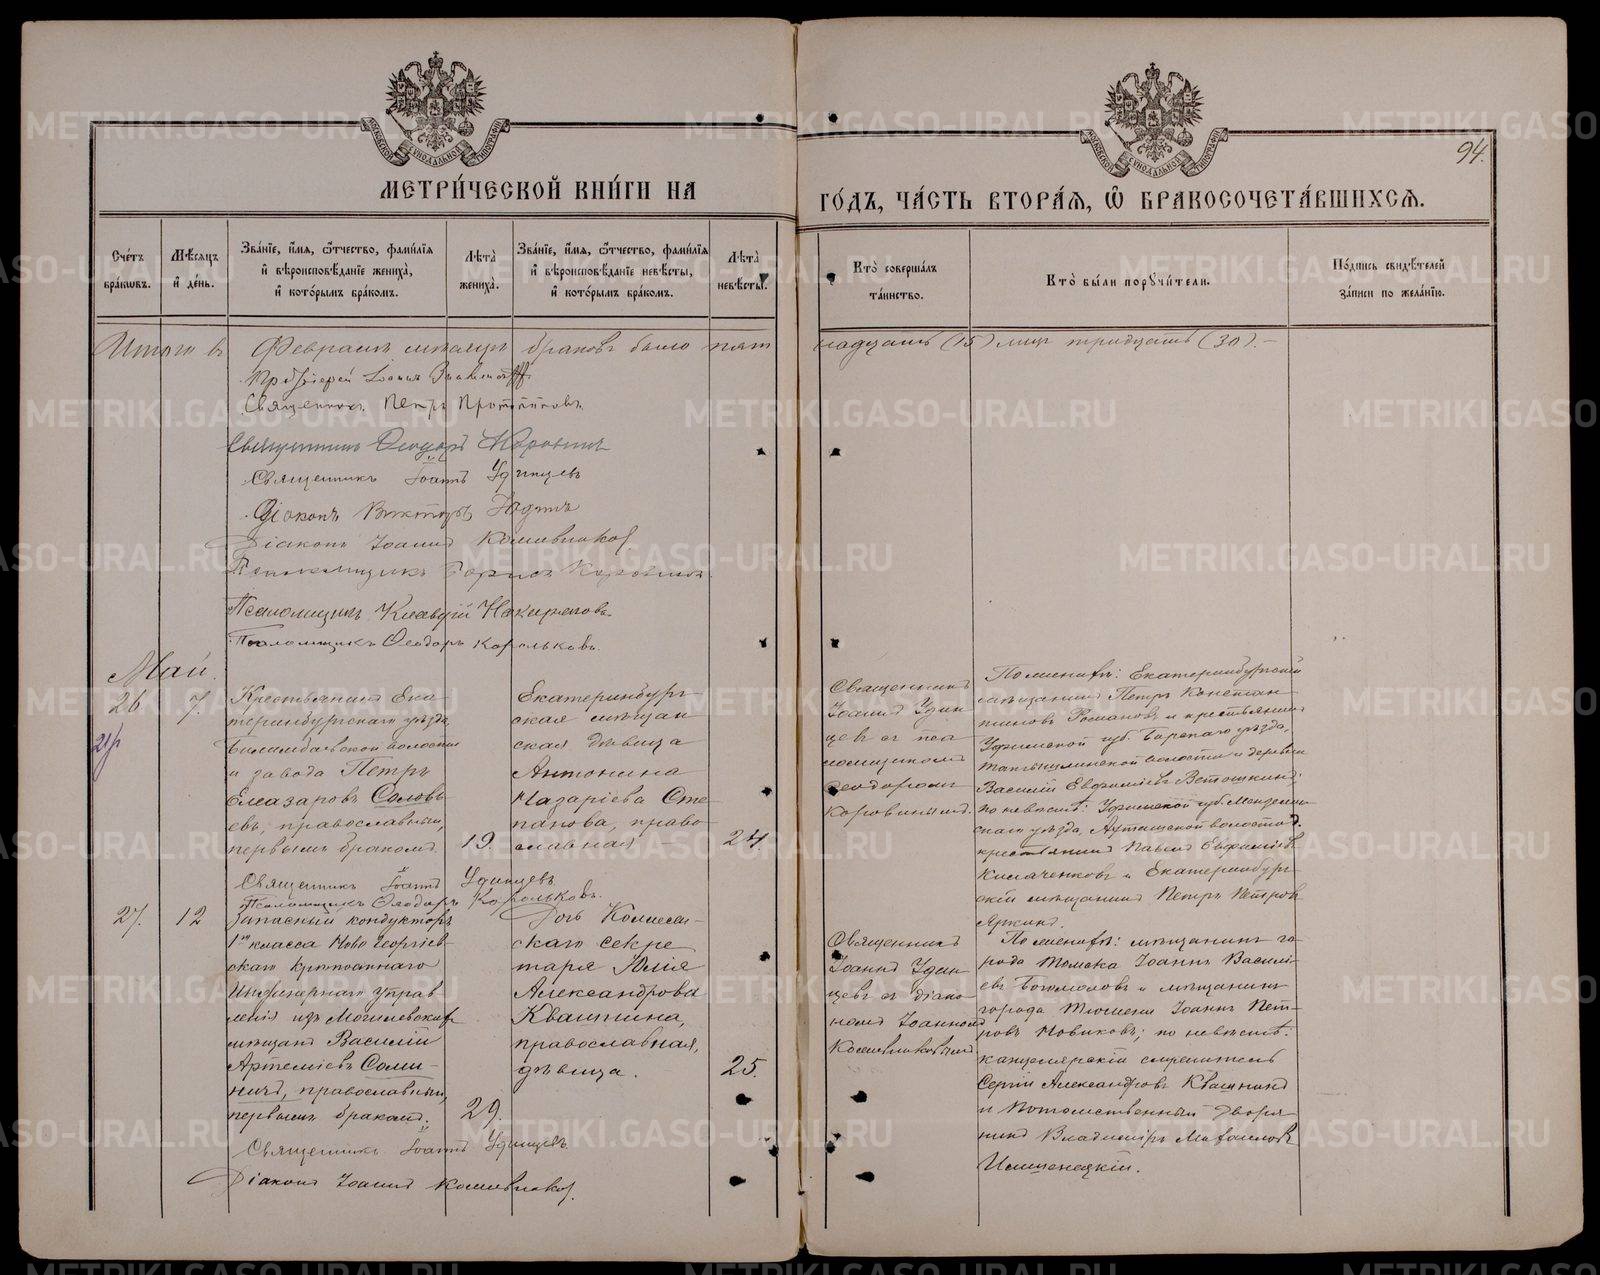 МОСКОВСКОЙ СУНОДАЛЬНОЙ ТИПОГРАФІИ
МОСКОВСКОЙ СУНОДАЛЬНОЙ ТИПОГРАФІИ
94.
МЕТРИ́ЧЕСКОЙ КНИ́ГИ НА
ГО́ДЪ, ЧА́СТЬ ВТОРА́Я, Ѡ҆ БРАКОСОЧЕТА́ВШИХСЯ.
Сче́тъ бра́кѡвъ.
Мѣ́сяцъ и҆ де́нь.
Зва́нїе, и҆́мя, ѻ҆́тчество, фами́лїя и҆ вѣроисповѣ́данїе жениха̀, и҆ кото́рымъ бра́комъ.
Лѣта̀ жениха̀.
Зва́нїе, и҆́мя, ѻ҆́тчество, фами́лїя и҆ вѣроисповѣ́данїе невѣ́сты, и҆ кото́рымъ бра́комъ.
Лѣта̀ невѣ́сты.
Кто̀ соверша́лъ та́инство.
Кто̀ бы́ли порꙋчи́тели.
По́дпись свидѣ́телей за́писи по жела́нїю.
Итого въ Февралѣ мѣсяцѣ браковъ было пят
надцать (15) лицъ тридцать (30).–
Протоіерей Іоаннъ
Священникъ Петръ
Священникъ Ѳеодоръ Коровинъ
Священникъ Іоаннъ Удинцевъ
Діаконъ Викторъ
Діаконъ Іоаннъ Кошевниковъ
Псаломщикъ Борисъ
Псаломщикъ Клавдій
Псаломщикъ Ѳеодоръ Корольковъ.
Май.
26
7.
Крестьянинъ Ека-
теринбургскаго уѣзда,
Билимбаевской волости
и завода Петръ
Елеазаровъ Соловь-
евъ, православный,
первымъ бракомъ
19.
Екатеринбург
ская мѣщан
ская дѣвица
Антонина
Назаріева Сте
панова, право-
славная –
24.
Священникъ
Іоаннъ Удин
цевъ съ пса
ломщикомъ
Ѳеодоромъ
По женихѣ: Екатеринбургскій
мѣщанинъ Петръ Констан-
тиновъ Романовъ и крестьянинъ
Уфимской губ. Бирскаго уѣзда,
волости и деревни
Василій Евфиміевъ Ветошкинъ;
по невѣстѣ: Уфимской губ. Мензелин
скаго уѣзда, волости
крестьянинъ Павелъ Евфиміевъ
и Екатеринбург
скій мѣщанинъ Петръ Петровъ
Священникъ Іоаннъ Удинцевъ
Псаломщикъ Ѳеодоръ Корольковъ.
27.
12
Запасный кондукторъ
1го класса Ново Георгіев-
скаго крѣпостнаго
Инженернаго Управ-
ленія изъ Могилевскихъ
мѣщанъ Василій
Артеміевъ Соми-
ничъ, православный,
первымъ бракомъ.
29.
Дочь Коллеж-
скаго секре
таря Юлія
Александрова
Квашнина,
православная,
дѣвица.
25.
Священникъ
Іоаннъ Удин-
цевъ съ діако-
номъ Іоанномъ
Кошевниковымъ
По женихѣ: мѣщанинъ го-
рода Томска Іоаннъ Василі-
евъ Богомоловъ и мѣщанинъ
города Тюмени Іоаннъ Пет-
ровъ Новиковъ; по невѣстѣ:
канцелярскій служитель
Сергій Александровъ Квашнинъ
и потомственный дворя-
нинъ Владиміръ Михаиловъ
Священникъ Іоаннъ Удинцевъ
Діаконъ Іоаннъ Кошевниковъ.
METRIKI.GASO-URAL.RU